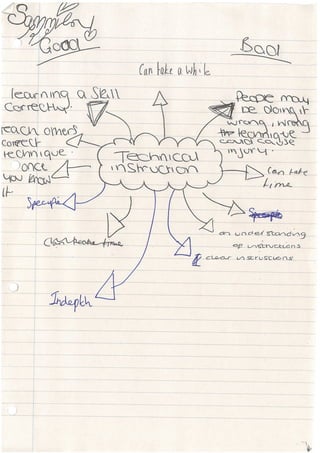 Good
Bad
Can take a while
learning a skill
correctly.
People may
be doing it
wrong, wrong
technique
could cause
injury.
teach others
correct
technique
once
you know
it
Technical
instruction
Can take
time
Specific
Specific
time
an understanding
of instructions
clear instructions
Indepth